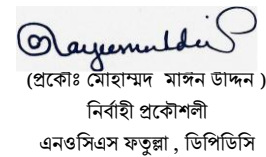 (প্রকৌঃ মোহাম্মদ মাঈন উদ্দিন )
নির্বাহী প্রকৌশলী
এনওসিএস ফতুল্লা , ডিপিডিসি